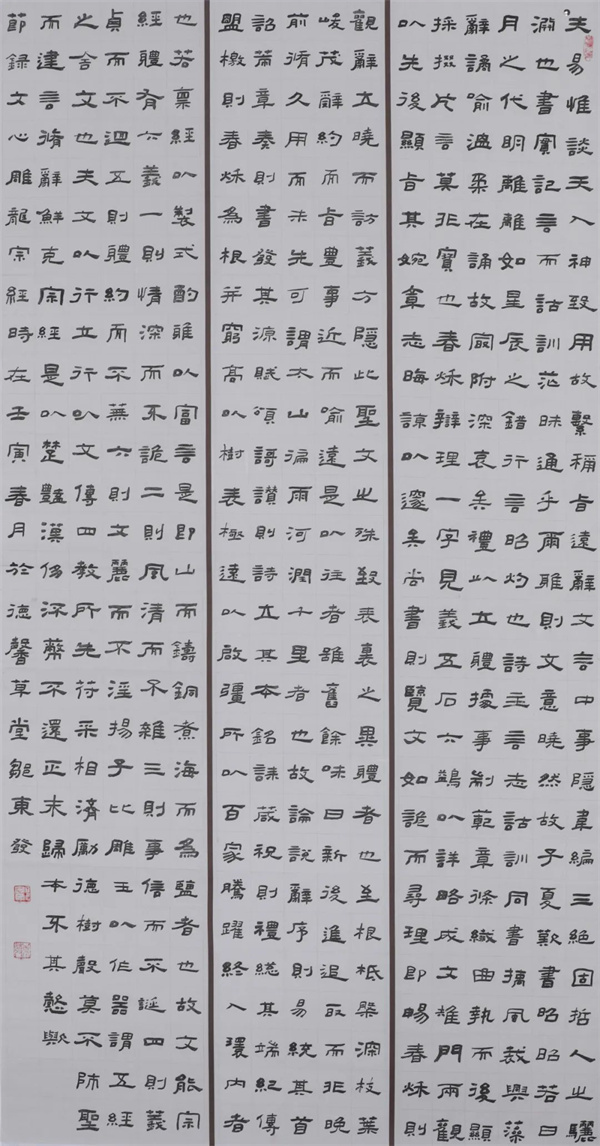 夫易惟談天入神致用故繫稱旨遠辭文言中事隱韋編三絕固哲人之驪
淵也書實記言而詁訓茫昧通乎爾雅則文意曉然故子夏歎書昭昭若日
月之代明離離如星辰之錯行言昭灼也詩主言志詁訓同書摛風裁興藻
辭譎喻溫柔在誦故最附深衷矣禮以立體據事制範章條纖曲執而後顯
採掇片言莫非寶也春秋辯理一字見義五石六鷁以詳略成文雉門兩觀
以先後顯旨其婉章志晦諒以邃矣尚書則覽文如詭而尋理即暢春秋則
觀辭立曉而訪義方隱此聖文之殊致表裏之異體者也至根柢槃深枝葉
峻茂辭約而旨豐事近而喻遠是以往者雖舊餘味日新後進追取而非晚
前脩久用而未先可謂太山徧雨河潤千里者也故論說辭序則易統其首
詔策章奏則書發其源賦頌謌讚則詩立其本銘誄箴祝則禮總其端紀傳
盟檄則春秋為根并窮高以樹表極遠以啟疆所以百家騰躍終入環內者
也若稟經以製式酌雅以富言是即山而鑄銅煮海而為鹽者也故文能宗
經體有六義一則情深而不詭二則風清而不雜三則事信而不誕四則義
貞而不迴五則體約而不蕪六則文麗而不淫揚子比雕玉以作器謂五經
之含文也夫文以行立行以文傳四教所先符采相濟勵德樹聲莫不師聖
而建言脩辭鮮克宗經是以楚豔漢侈流弊不還正末歸本不其懿歟
節錄文心雕龍宗經時在壬寅春月於德馨草堂鄒東發